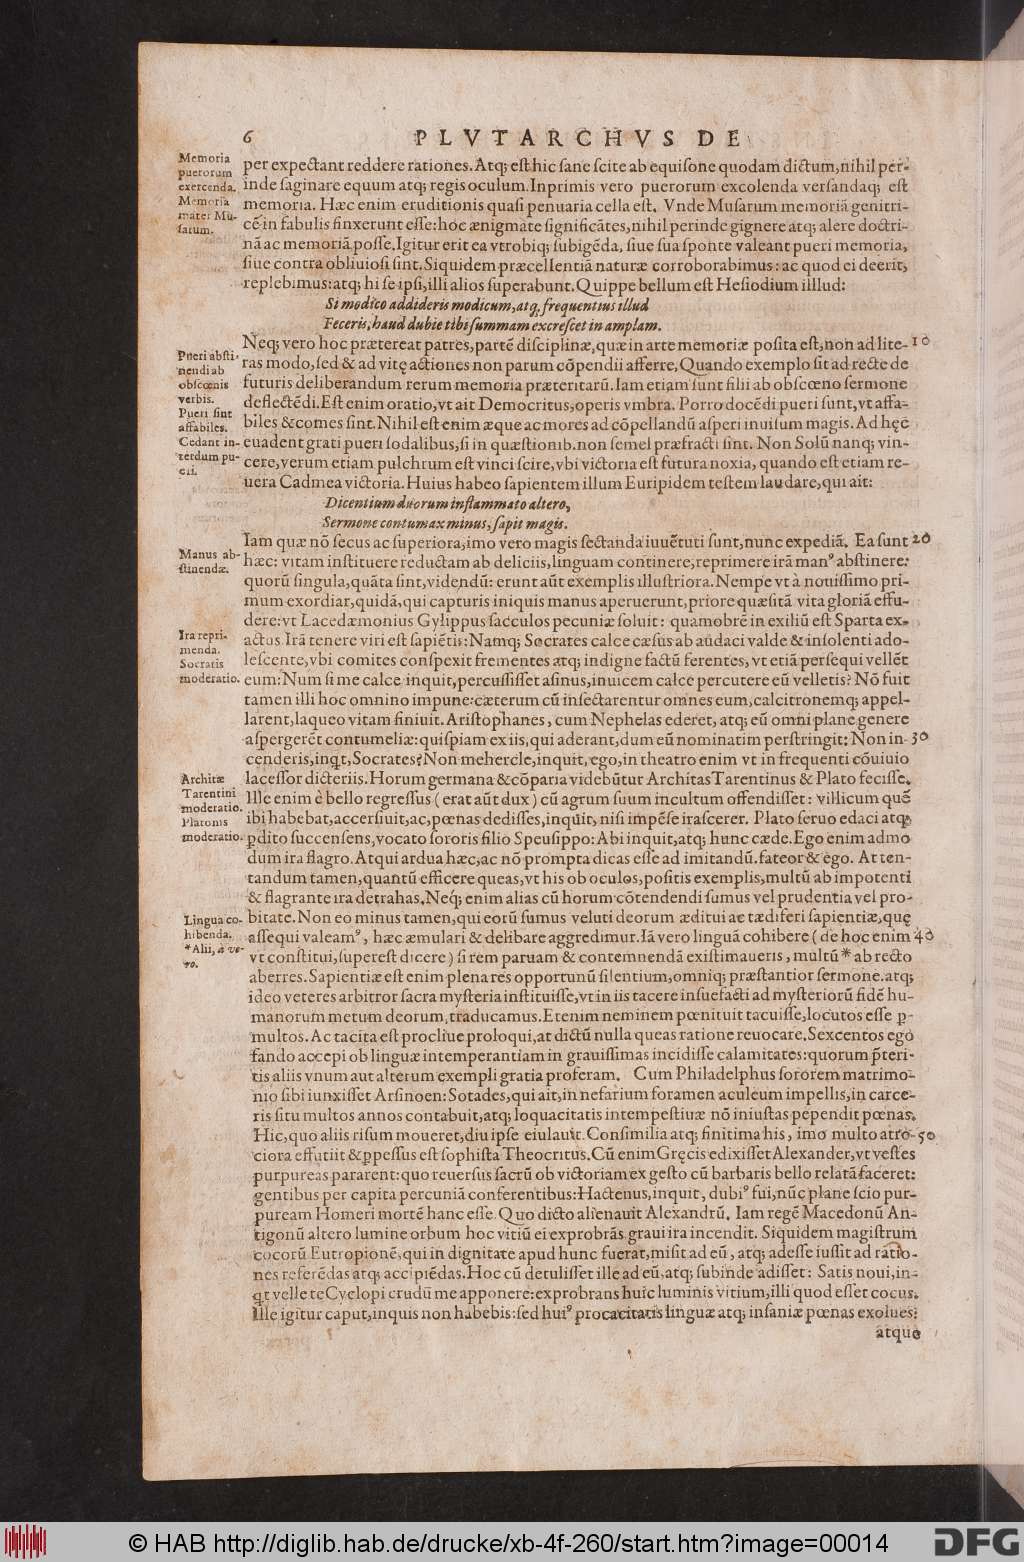 6 PLVTARCHVS DE
Memoria
puerorum
exercenda.
Memoria
mater Mu-
sarum.
per expectant reddere rationes. Atq; est hic sane scite ab equisone quodam dictum, nihil per-
inde saginare equum atq; regis oculum. Inprimis vero puerorum excolenda versandaq; est
memoria. Hæc enim eruditionis quasi penuaria cella est. Vnde Musarum memoriã genitri-
cẽ in fabulis finxerunt esse: hoc ænigmate significãtes, nihil perinde gignere atq; alere doctri-
nã ac memoriã posse. Igitur erit ea vtrobiq; subigẽda, siue sua sponte valeant pueri memoria,
siue contra obliuiosi sint. Siquidem præcellentiã naturæ corroborabimus: ac quod ei deerit,
replebimus: atq; hi se ipsi, illi alios superabunt. Quippe bellum est Hesiodium illlud:
Si modico addideris modicum, atq, frequentius illud
Feceris, haud dubie tibi summam excrescet in amplam.
Neq; vero hoc prætereat patres, partẽ disciplinæ, quæ in arte memoriæ posita est, non ad lite- 10
Pueri absti-
nendi ab
obscœnis
verbis.
Pueri sint
affabiles.
Cedant in-
terdum pu-
eri.
ras modo, sed & ad vitę actiones non parum cõpendii afferre, Quando exemplo sit ad recte de
futuris deliberandum rerum memoria præteritarũ. Iam etiam sunt filii ab obscœno sermone
deflectẽdi. Est enim oratio, vt ait Democritus, operis vmbra. Porro docẽdi pueri sunt, vt affa-
biles & comes sint. Nihil est enim æque ac mores ad cõpellandũ asperi inuisum magis. Ad hęc
euadent grati pueri sodalibus, si in quæstionib. non semel præfracti sint. Non Solũ nanq; vin-
cere, verum etiam pulchrum est vinci scire, vbi victoria est futura noxia, quando est etiam re-
uera Cadmea victoria. Huius habeo sapientem illum Euripidem testem laudare, qui ait:
Dicentium duorum inflammato altero,
Sermone contumax minus, sapit magis.
Iam quæ nõ secus ac superiora, imo vero magis sectanda iuuẽtuti sunt, nunc expediã. Ea sunt 20
Manus ab-
stinendæ.
hæc: vitam instituere reductam ab deliciis, linguam continere, reprimere irã manꝰ abstinere:
quorũ singula, quãta sint, videndũ: erunt aũt exemplis illustriora. Nempe vt à nouissimo pri-
mum exordiar, quidã, qui capturis iniquis manus aperuerunt, priore quæsitã vita gloriã effu-
dere: vt Lacedæmonius Gylippus sacculos pecuniæ soluit: quamobrẽ in exiliũ est Sparta ex-
Ira repri-
menda.
Socratis
moderatio.
actus. Irã tenere viri est sapiẽtis: Namq; Socrates calce cæsus ab audaci valde & insolenti ado-
lescente, vbi comites conspexit frementes atq; indigne factũ ferentes, vt etiã persequi vellẽt
eum: Num si me calce inquit, percussisset asinus, inuicem calce percutere eũ velletis? Nõ fuit
tamen illi hoc omnino impune: cæterum cũ insectarentur omnes eum, calcitronemq; appel-
larent, laqueo vitam finiuit. Aristophanes, cum Nephelas ederet, atq; eũ omni plane genere
aspergerẽt contumeliæ: quispiam ex iis, qui aderant, dum eũ nominatim perstringit: Non in- 30
cenderis, inqt, Socrates? Non mehercle, inquit, ego, in theatro enim vt in frequenti cõuiuio
Architæ
Tarentini
moderatio.
Platonis
moderatio.
lacessor dicteriis. Horum germana & cõparia videbũtur Architas Tarentinus & Plato fecisse.
Ille enim è bello regressus (erat aũt dux) cũ agrum suum incultum offendisset: villicum quẽ
ibi habebat, accersiuit, ac, pœnas dedisses, inquit, nisi impẽse irascerer. Plato seruo edaci atq;
ꝑdito succensens, vocato sororis filio Speusippo: Abi inquit, atq; hunc cæde. Ego enim admo
dum ira flagro. Atqui ardua hæc, ac nõ prompta dicas esse ad imitandũ. fateor & ego. At ten-
tandum tamen, quantũ efficere queas, vt his ob oculos, positis exemplis, multũ ab impotenti
& flagrante ira detrahas. Neq; enim alias cũ horum cõtendendi sumus vel prudentia vel pro-
Lingua co-
hibenda.
*Alii, à ve-
ro.
bitate. Non eo minus tamen, qui eorũ sumus veluti deorum æditui ac tædiferi sapientiæ, quę
assequi valeamꝰ, hæc æmulari & delibare aggredimur. Iã vero linguã cohibere (de hoc enim 40
vt constitui, superest dicere) si rem paruam & contemnendã existimaueris, multũ* ab recto
aberres. Sapientiæ est enim plena res opportunũ silentium, omniq; præstantior sermone. atq;
ideo veteres arbitror sacra mysteria instituisse, vt in iis tacere insuefacti ad mysteriorũ fidẽ hu-
manorum metum deorum, traducamus. Etenim neminem pœnituit tacuisse, locutos esse ꝑ-
multos. Ac tacita est procliue proloqui, at dictũ nulla queas ratione reuocare. Sexcentos ego
fando accepi ob linguæ intemperantiam in grauissimas incidisse calamitates: quorum p̃teri-
tis aliis vnum aut alterum exempli gratia proferam. Cum Philadelphus sororem matrimo-
nio sibi iunxisset Arsinoen: Sotades, qui ait, in nefarium foramen aculeum impellis, in carce-
ris situ multos annos contabuit, atq; loquacitatis intempestiuæ nõ iniustas pependit pœnas.
Hic, quo aliis risum moueret, diu ipse eiulauit. Consimilia atq; finitima his, imo multo atro- 50
ciora effutiit & ꝑpessus est sophista Theocritus. Cũ enim Gręcis edixisset Alexander, vt vestes
purpureas pararent: quo reuersus sacrũ ob victoriam ex gesto cũ barbaris bello relatã faceret:
gentibus per capita percuniã conferentibus: Hactenus, inquit, dubiꝰ fui, nũc plane scio pur-
puream Homeri mortẽ hanc esse. Quo dicto alienauit Alexandrũ. Iam regẽ Macedonũ An-
tigonũ altero lumine orbum hoc vitiũ ei exprobrãs graui ira incendit. Siquidem magistrum
cocorũ Eutropionẽ, qui in dignitate apud hunc fuerat, misit ad eũ, atq; adesse iussit ad ratio-
nes referẽdas atq; accipiẽdas. Hoc cũ detulisset ille ad eũ, atq; subinde adisset: Satis noui, in-
qt velle te Cyclopi crudũ me apponere: exprobrans huic luminis vitium, illi quod esset cocus.
Ille igitur caput, inquis non habebis: sed huiꝰ procacitatis linguæ atq; insaniæ pœnas exolues:
atque
© HAB http://diglib.hab.de/drucke/xb-4f-260/start.htm?image=00014
DFG